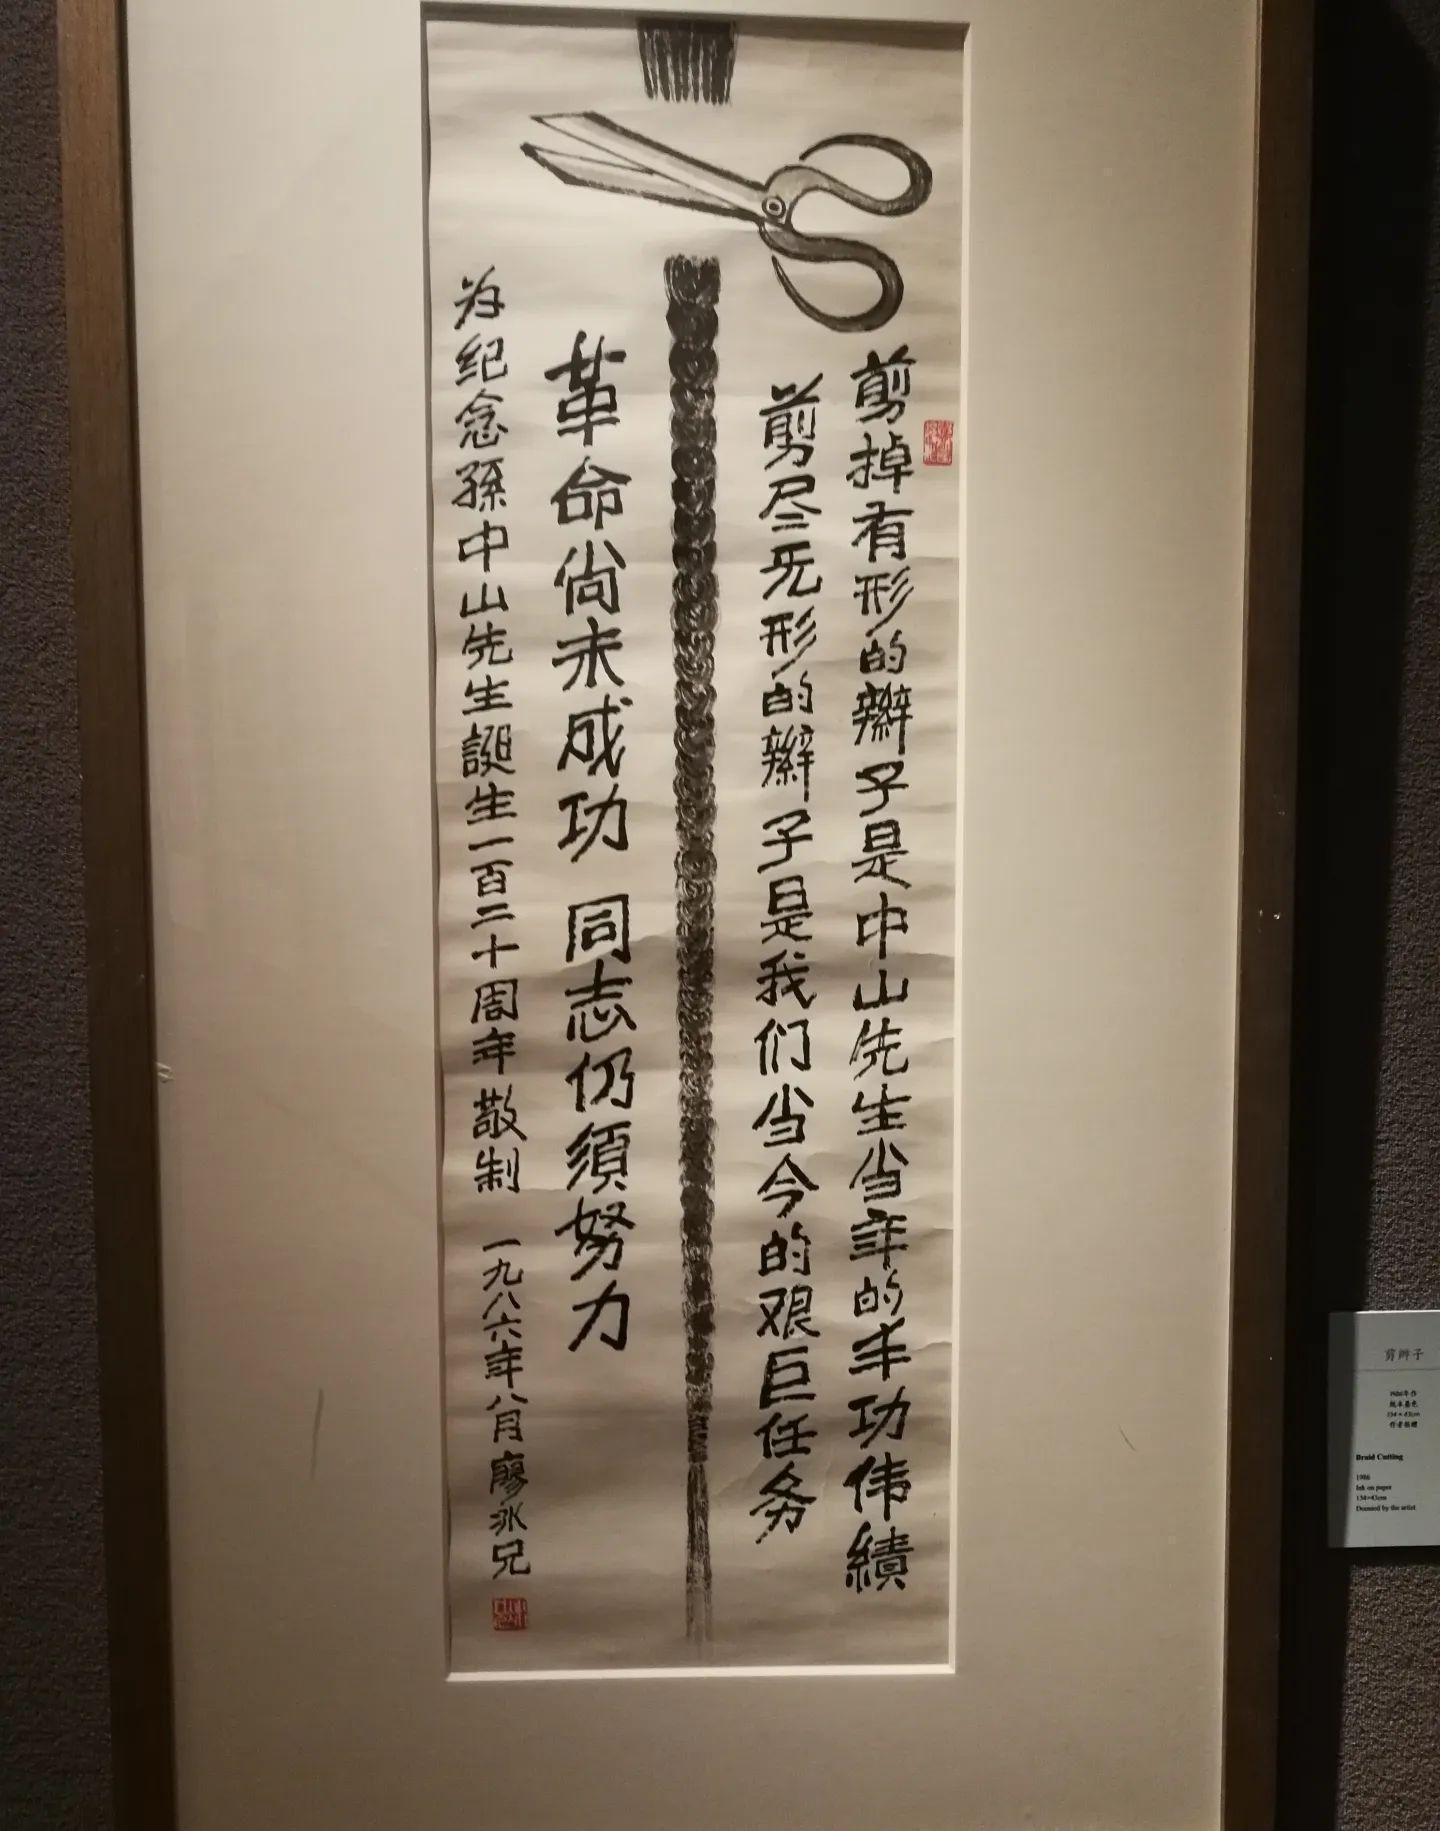 剪掉有形的辮子是中山先生当年的丰功伟績
剪尽旡形的辮子是我们当今的艰巨任务
革命尚未成功 同志仍須努力
为纪念孫中山先生誕生一百二十周年敬制 一九八六年八月廖冰兄
剪辫子
1986年作
纸本墨色
134×43cm
作者捐赠
Braid Cutting
1986
Ink on paper
134×43cm
Donated by the artist